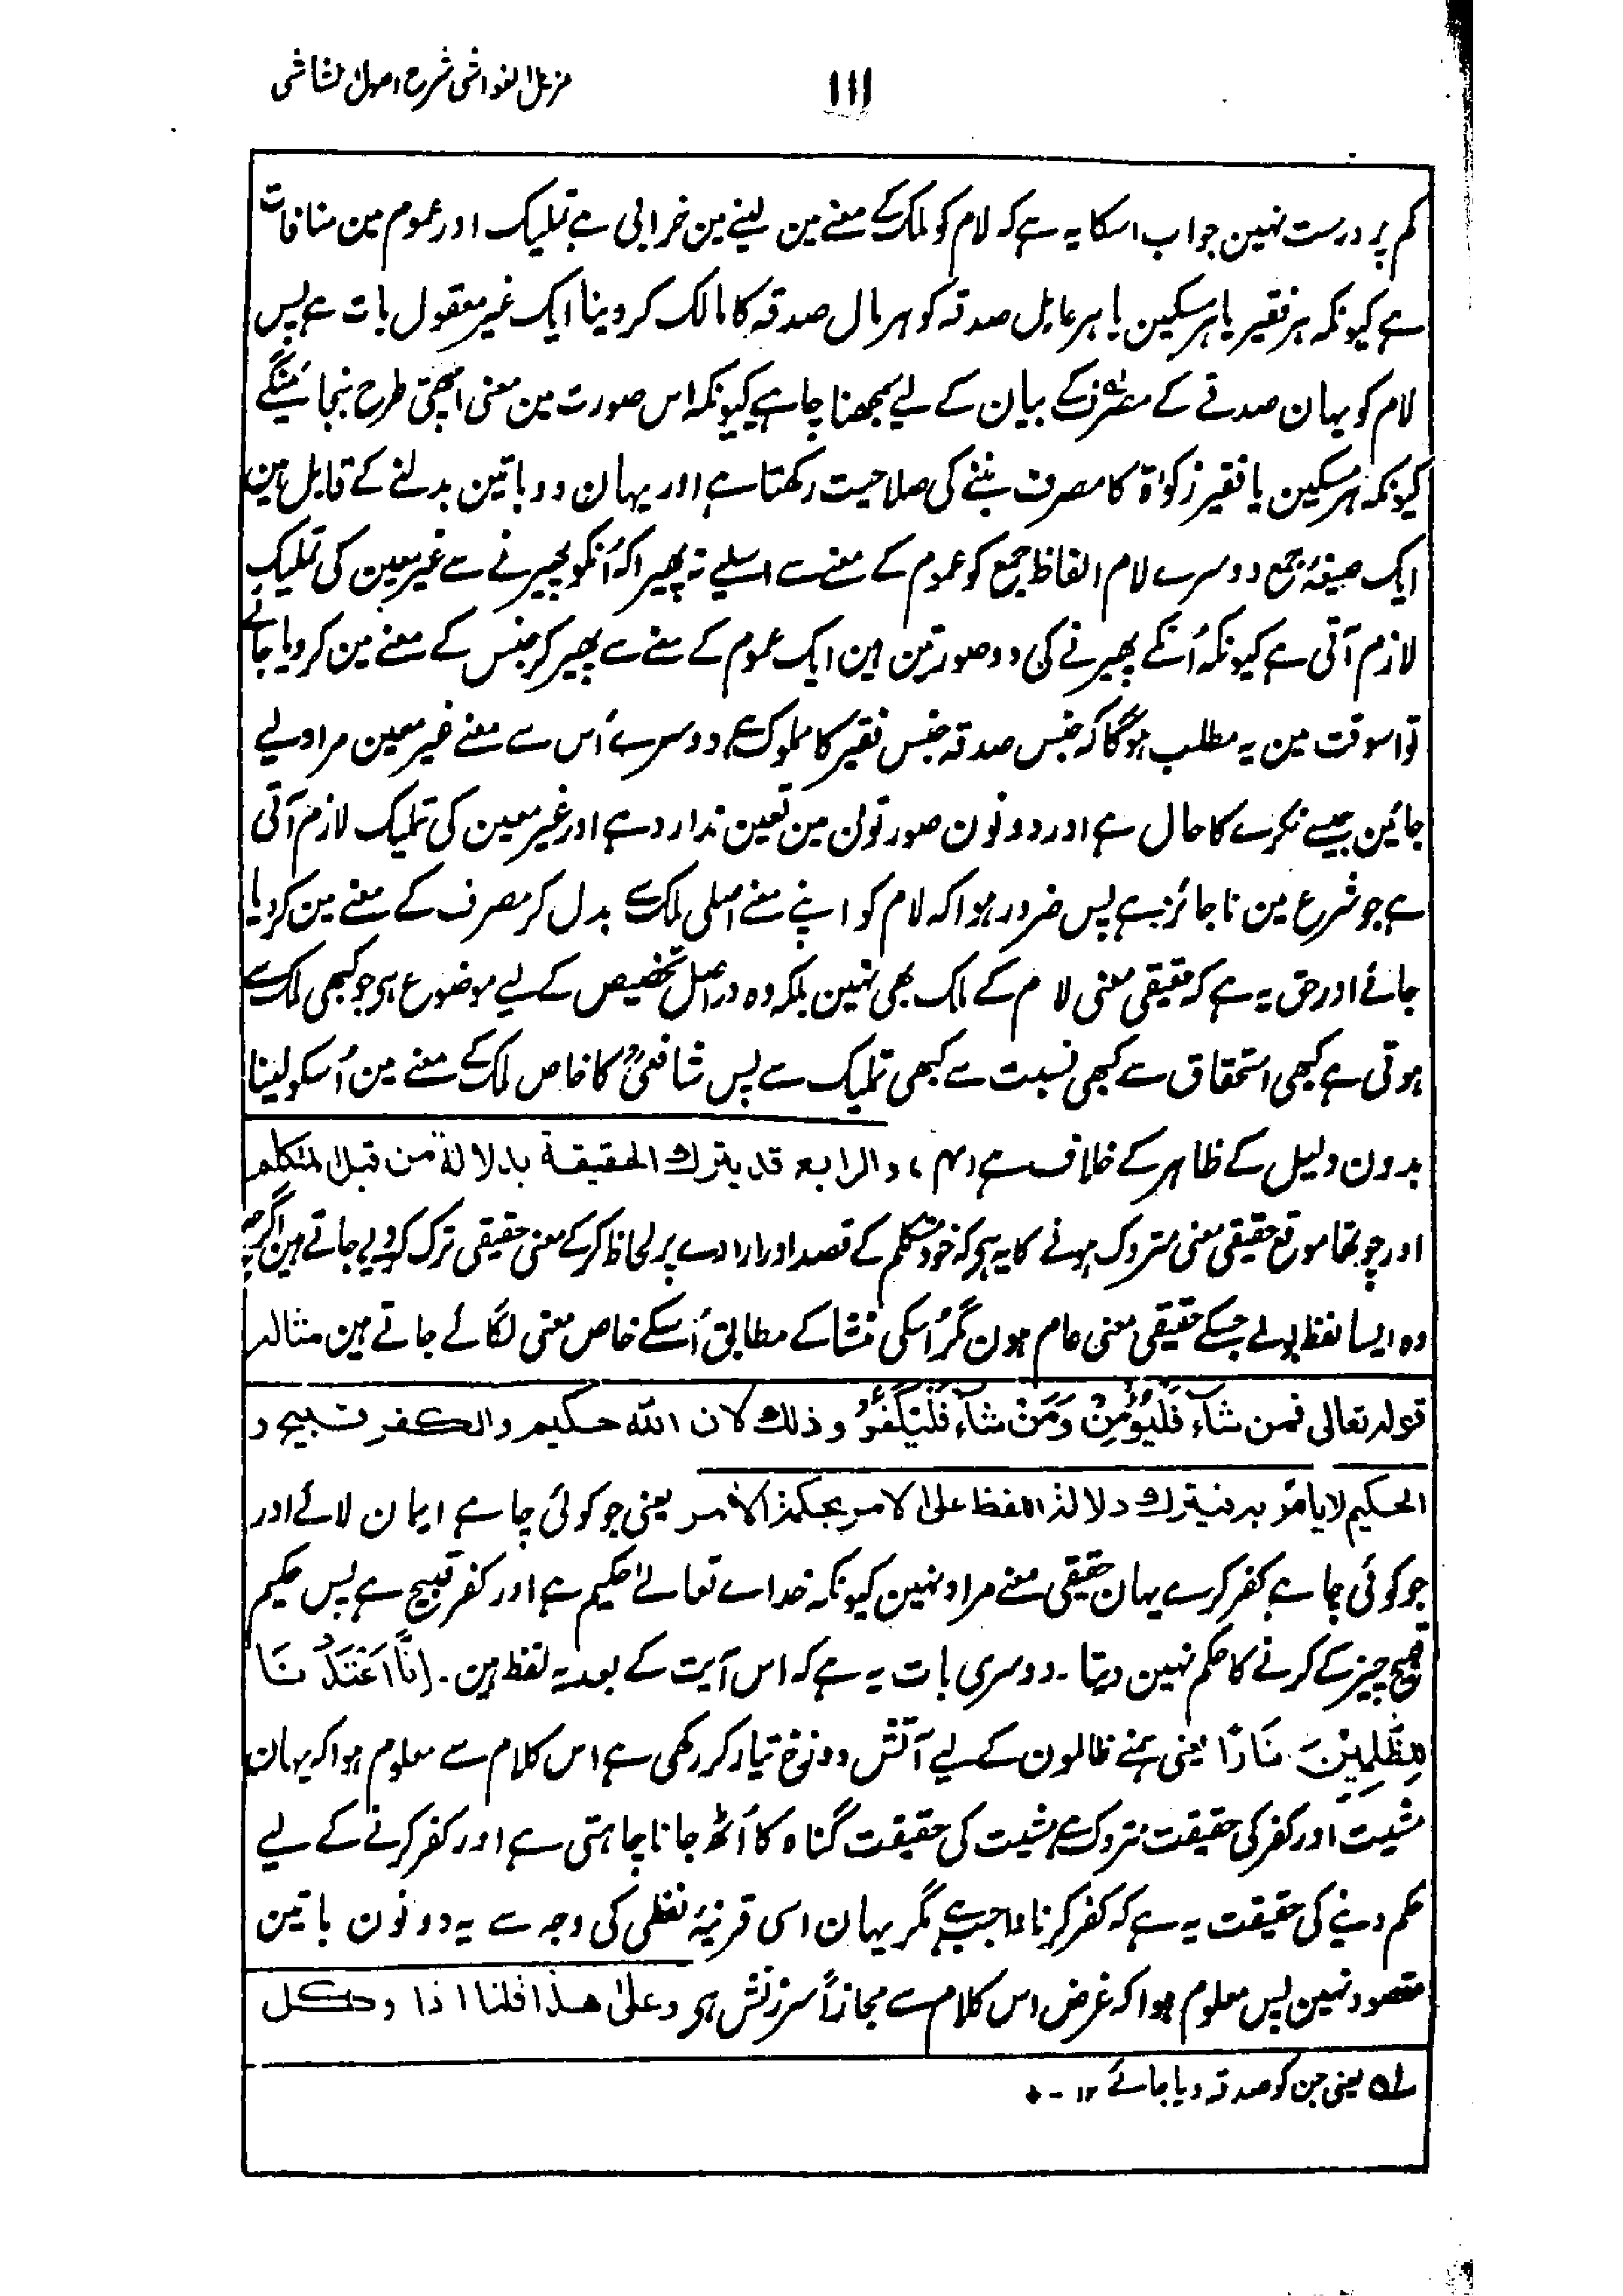 مزیل الغواشی شرح اصول الشاشی
۱۱۱
کم پر درست نہین جواب اسکا یہ ہے کہ لام کو ملک کے معنے مین لینے مین خرابی ہے تملیک اور عموم مین منافات
ہے کیونکہ ہر فقیر یا ہر مسکین یا ہر عامل صدقہ کو ہر مال صدقہ کا مالک کر دینا ایک غیر معقول بات ہے پس
لام کو یہان صدقے کے مصرف کے بیان کے لیے سمجھنا چاہیے کیونکہ اس صورت مین معنی اچھی طرح بنجائینگے
کیونکہ ہر مسکین یا فقیر زکوٰۃ کا مصرف بننے کی صلاحیت رکھتا ہے اور یہان دو باتین بدلنے کے قابل ہین
ایک صیغۂ جمع دوسرے لام الفاظ جمع کو عموم کے معنے سے اسلیے نہ پھیرا کہ اُنکو پھیرنے سے غیر معین کی تملیک
لازم آتی ہے کیونکہ اُنکے پھیرنے کی دو صورتین ہین ایک عموم کے معنے سے پھیر کر جنس کے معنے مین کر دیا جائے
تو اسوقت مین یہ مطلب ہوگا کہ جنس صدقہ جنس فقیر کا مملوک ہے دوسرے اُس سے معنے غیر معین مراد لیے
جائین جیسے نکرے کا حال ہے اور دونون صورتون مین تعین ندارد ہے اور غیر معین کی تملیک لازم آتی
ہے جو شرع مین ناجائز ہے پس ضرور ہوا کہ لام کو اپنے معنے اصلی ملک سے بدل کر مصرف کے معنے مین کر دیا
جائے اور حق یہ ہے کہ حقیقی معنی لام کے ملک بھی نہین بلکہ وہ در اصل تخصیص کے لیے موضوع ہی جو کبھی ملک سے
ہوتی ہے کبھی استحقاق سے کبھی نسبت سے کبھی تملیک سے پس شافعیؒ کا خاص ملک کے معنے مین اُسکو لینا
بدون دلیل کے ظاہر کے خلاف ہے (۴) والرابع قد یترك الحقیقة بدلالة من قبل المتکلم
اور چوتھا موقع حقیقی معنی متروک ہونے کا یہ ہی کہ خود متکلم کے قصد اور ارادے پر لحاظ کر کے معنی حقیقی ترک کر دیے جاتے ہین اگرچہ
وہ ایسا لفظ بولے جسکے حقیقی معنی عام ہون مگر اُسکی منشا کے مطابق اُسکے خاص معنی لگائے جاتے ہین مثالہ
قوله تعالی فمن شآء فَلْیُؤْمِنْ وَمَنْ شآء فَلْیَكْفُرْ وذلك لان الله حكیم والكفر قبیح و
الحكیم لایأمر به فیترك دلالة اللفظ علی الامر بحكمة الآمر یعنی جو کوئی چاہے ایمان لائے اور
جو کوئی چاہے کفر کرے یہان حقیقی معنے مراد نہین کیونکہ خداے تعالےٰ حکیم ہے اور کفر قبیح ہے پس حکیم
قبیح چیز کے کرنے کا حکم نہین دیتا۔ دوسری بات یہ ہے کہ اس آیت کے بعد یہ لفظ ہین۔ اِنَّا اَعْتَدْنَا
لِلظّٰلِمِیْنَ نَارًا یعنی ہمنے ظالمون کے لیے آتش دوزخ تیار کر رکھی ہے اس کلام سے معلوم ہوا کہ یہان
مشیت اور کفر کی حقیقت متروک ہے مشیت کی حقیقت گناہ کا اُٹھ جانا چاہتی ہے اور کفر کرنے کے لیے
حکم دینے کی حقیقت یہ ہے کہ کفر کرنا واجب ہے مگر یہان اسی قرینۂ لفظی کی وجہ سے یہ دونون باتین
مقصود نہین پس معلوم ہوا کہ غرض اس کلام سے مجازاً سرزنش ہی وعلیٰ هذا قلنا اذا وكل
لہ یعنی جن کو صدقہ دیا جائے ۱۲